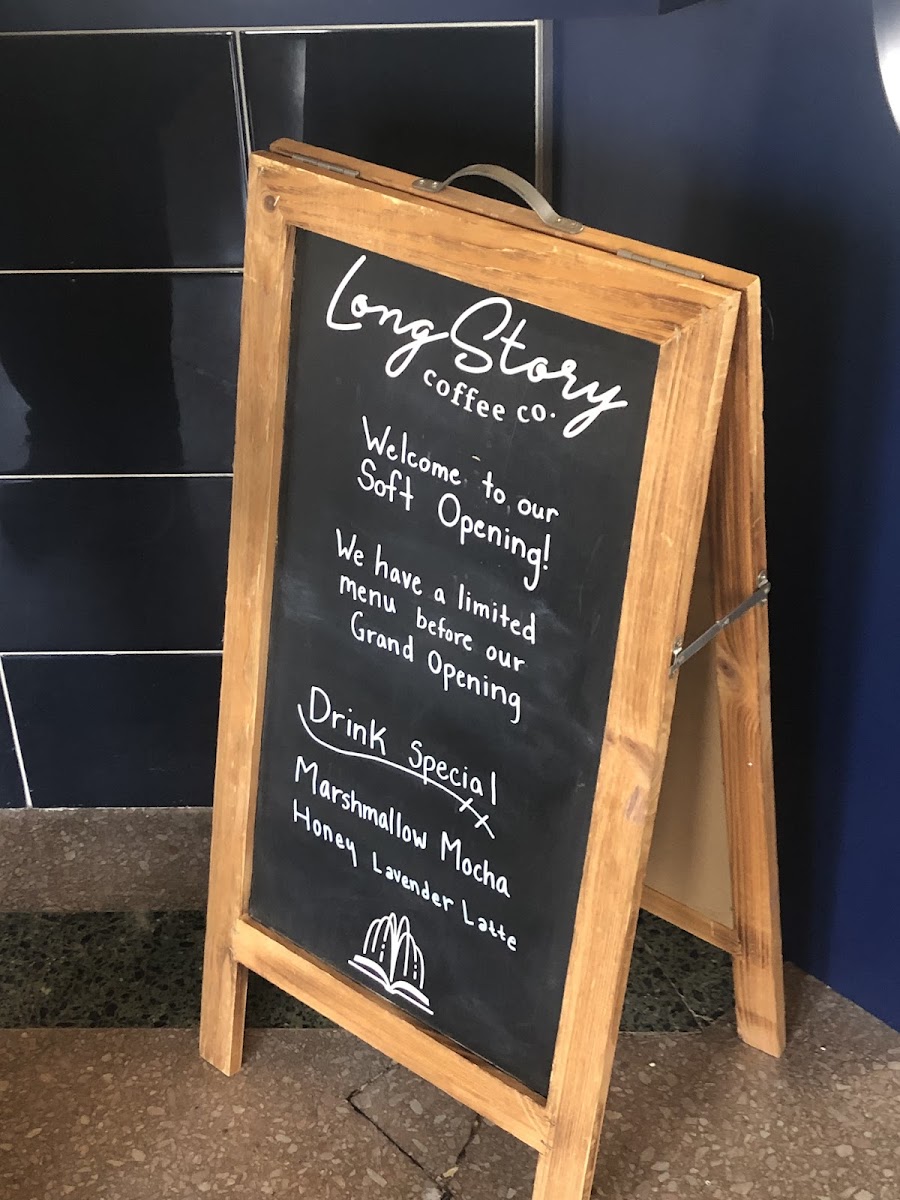 Long Story
coffee co.
Welcome to our
Soft Opening!
We have a limited
menu before our
Grand Opening
Drink Special
Marshmallow Mocha
Honey Lavender Latte